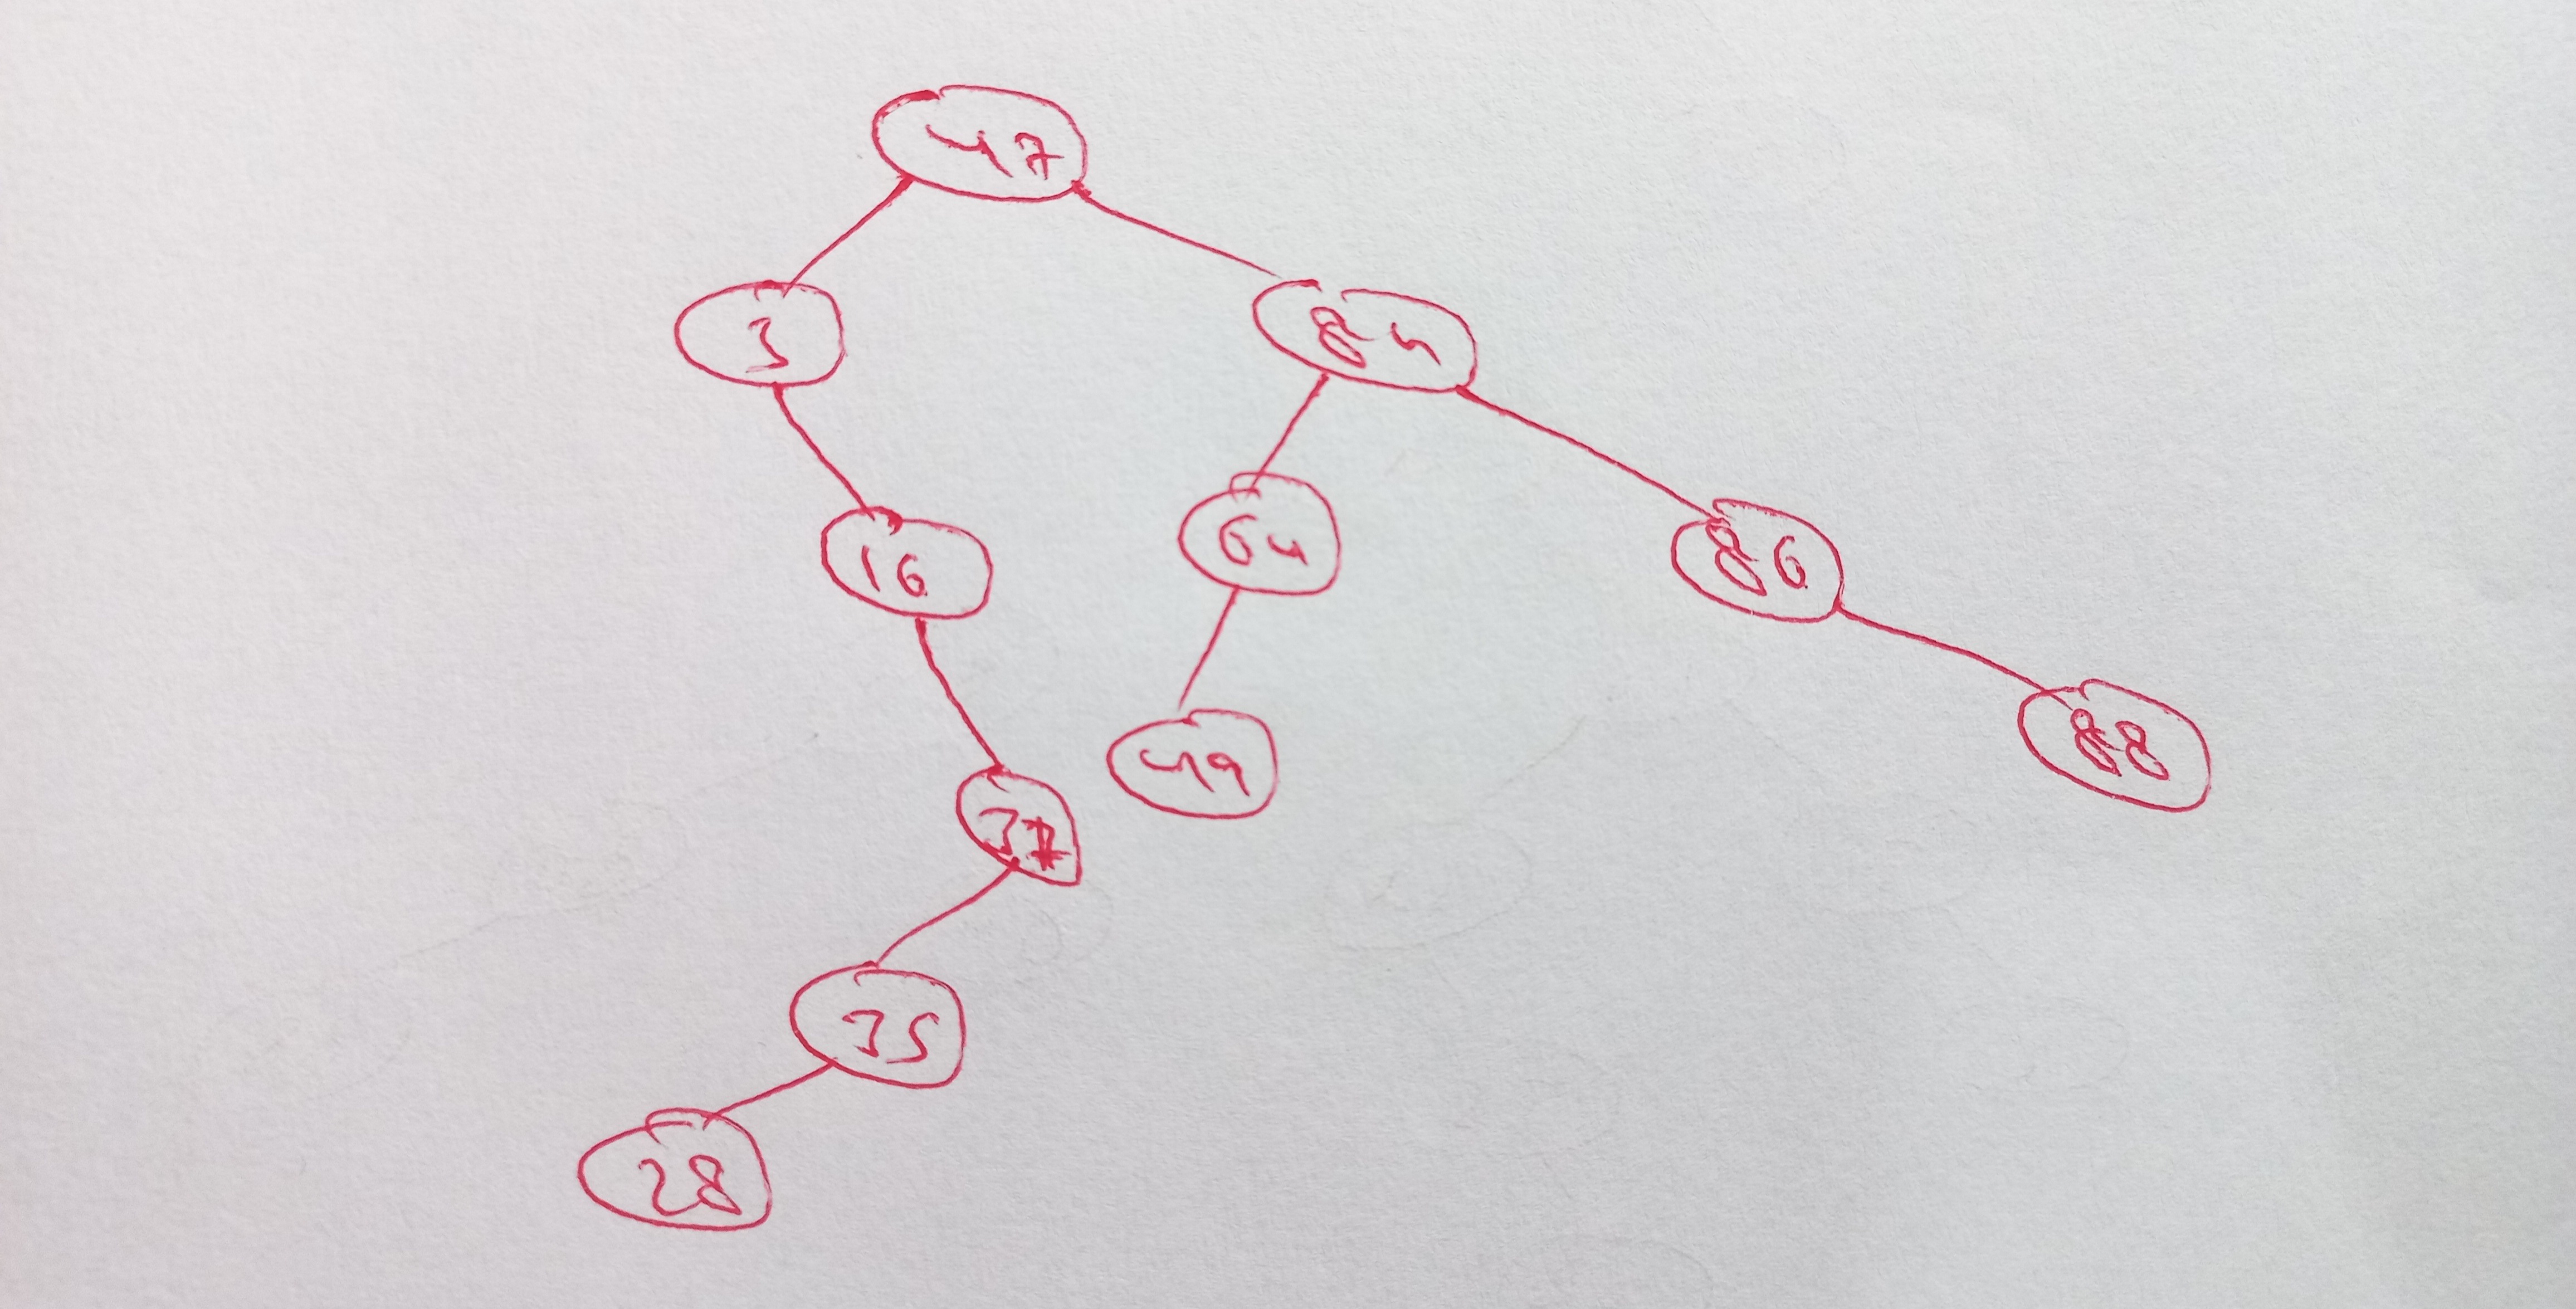 47
3 84
16 64 86
37 49 88
35
28